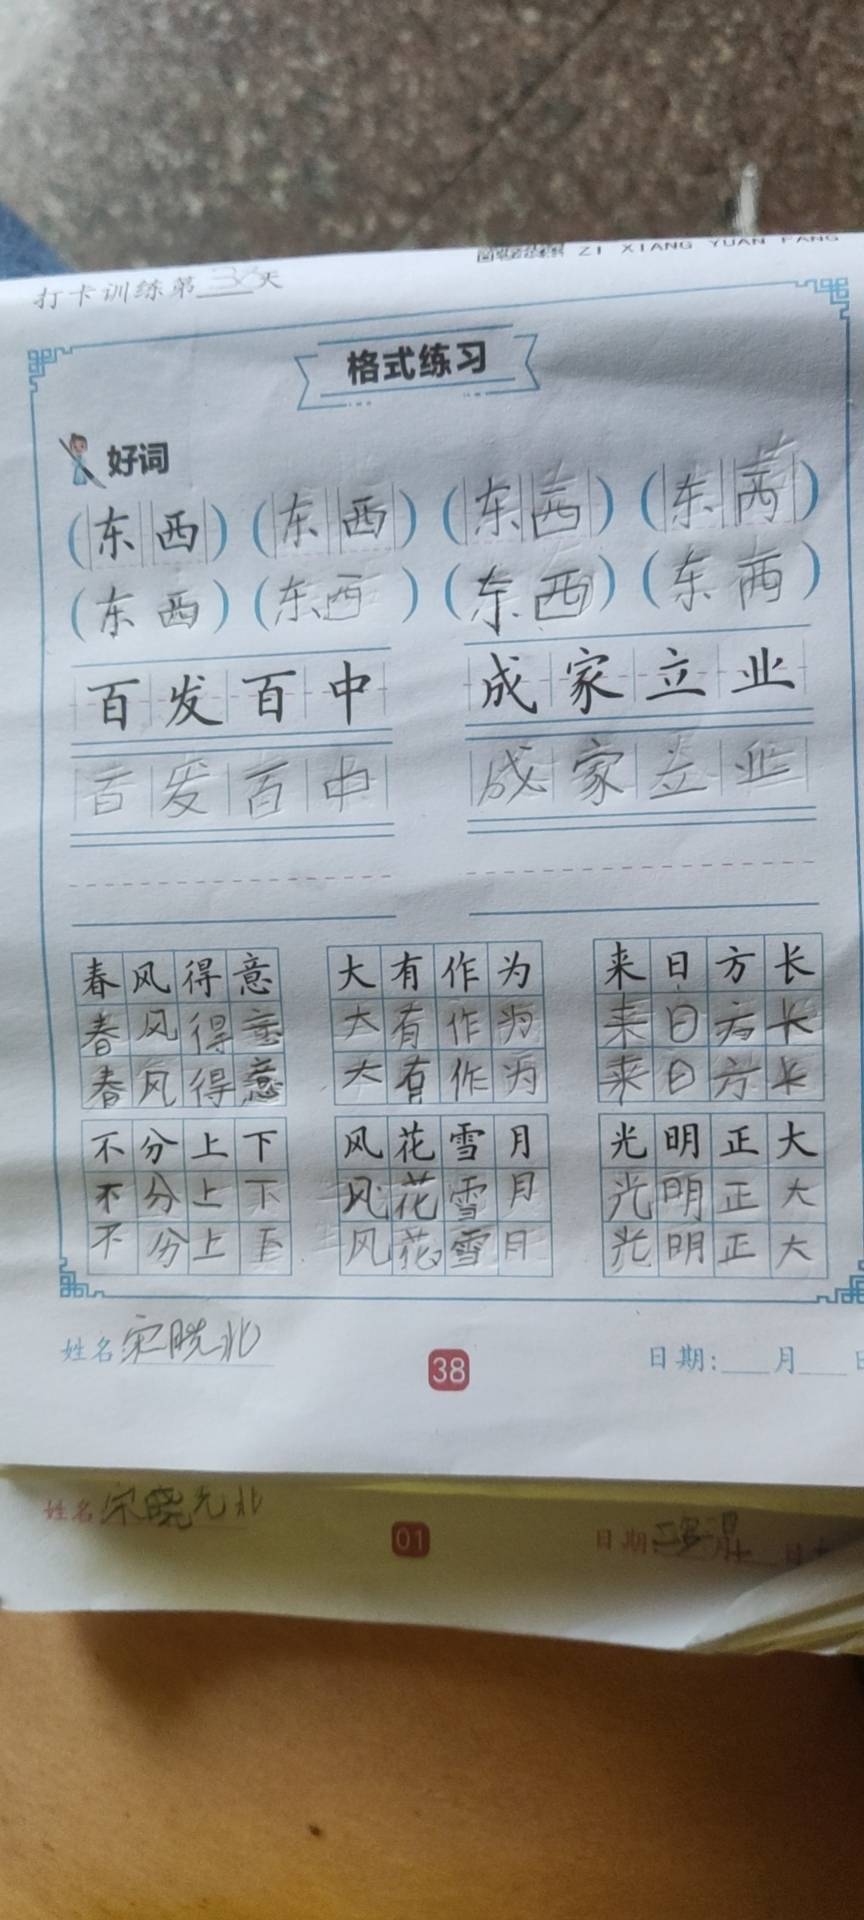 ZI XIANG YUAN FANG
打卡训练第38天
格式练习
好词
(东西) (东西) (东西) (东西)
(东西) (东西) (东西) (东西)
百发百中 成家立业
百发百中 成家立业
春风得意 大有作为 来日方长
春风得意 大有作为 来日方长
春风得意 大有作为 来日方长
不分上下 风花雪月 光明正大
不分上下 风花雪月 光明正大
不分上下 风花雪月 光明正大
姓名 宋晓北 38 日期:___月___日
姓名 宋晓北 01 日期